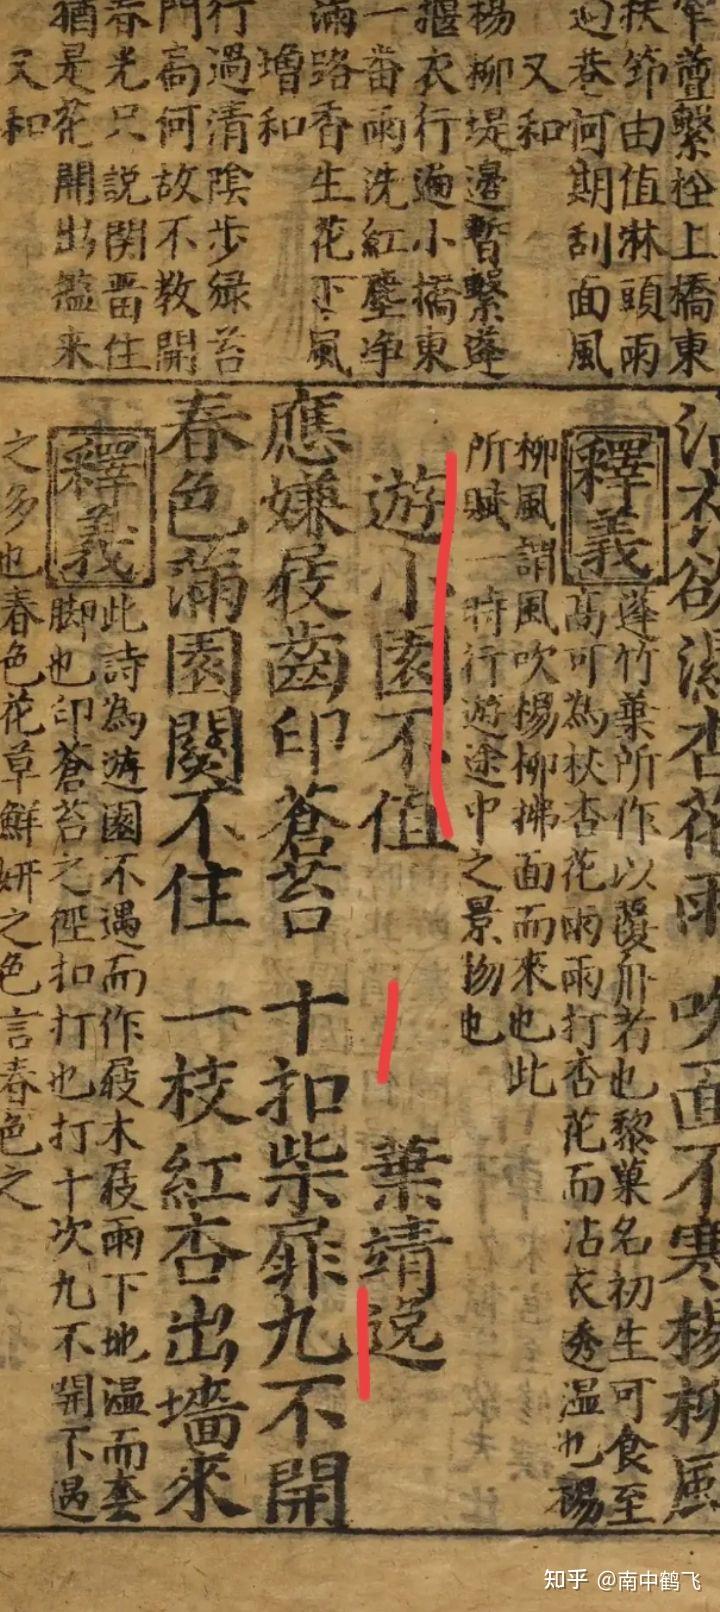 牢蓋繫栓上橋東
扶筇由值淋頭雨
迎巷何期刮面風
又和
楊柳堤邊暫繫蓬
摳衣行遍小橋東
一番雨洗紅塵净
滿路香生花下風
增和
行過清陰步綠苔
門高何故不教開
春光只説関畱住
猶是花開出檻来
又和
沾衣欲濕杏花雨 吹面不寒楊柳風
釋義
蓬竹葉所作以覆舟者也藜菓名初生可食至
高可為杖杏花雨雨打杏花而沾衣透温也楊
柳風謂風吹楊柳拂面而來也此
所賦一時行遊途中之景物也
遊小園不值 葉靖逸
應嫌屐齒印蒼苔 十扣柴扉九不開
春色滿園関不住 一枝紅杏出墻來
釋義
此詩為遊園不遇而作屐木屐雨下地温而
脚也印蒼苔之徑扣打也打十次九不開不遇
之多也春色花草鮮妍之色言春色之
知乎 @南中鹤飞